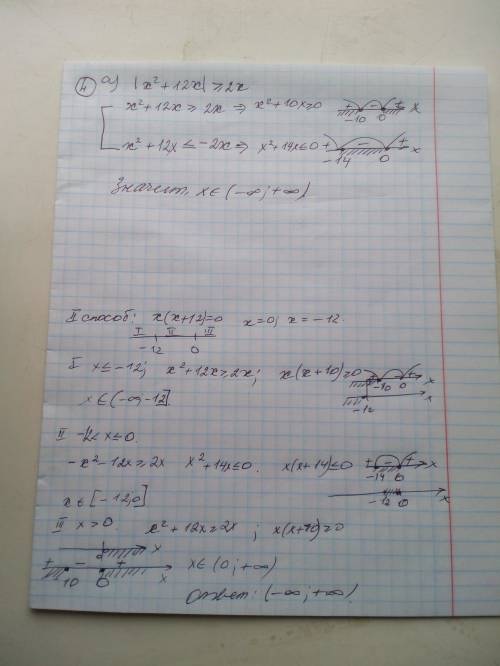 4 а) |x²+12x| ≥ 2x
x²+12x ≥ 2x ⇒ x²+10x ≥ 0 + - + -10 0 x
x²+12x ≤ -2x ⇒ x²+14x ≤ 0 + - + -14 0 x
Значит, x ∈ (-∞; +∞)
II способ: x(x+12)=0 x=0; x=-12.
I II III
-12 0
I x ≤ -12; x²+12x ≥ 2x; x(x+10) ≥ 0 -10 0 x
x ∈ (-∞; -12] -12 x
II -12 < x ≤ 0.
-x²-12x ≥ 2x x²+14x ≤ 0. x(x+14) ≤ 0 + - + -14 0 x
x ∈ [-12; 0] -12 0 x
III x > 0 x²+12x ≥ 2x ; x(x+10) ≥ 0
0 x
+ - + 10 0 x x ∈ (0; +∞)
Ответ: (-∞; +∞).